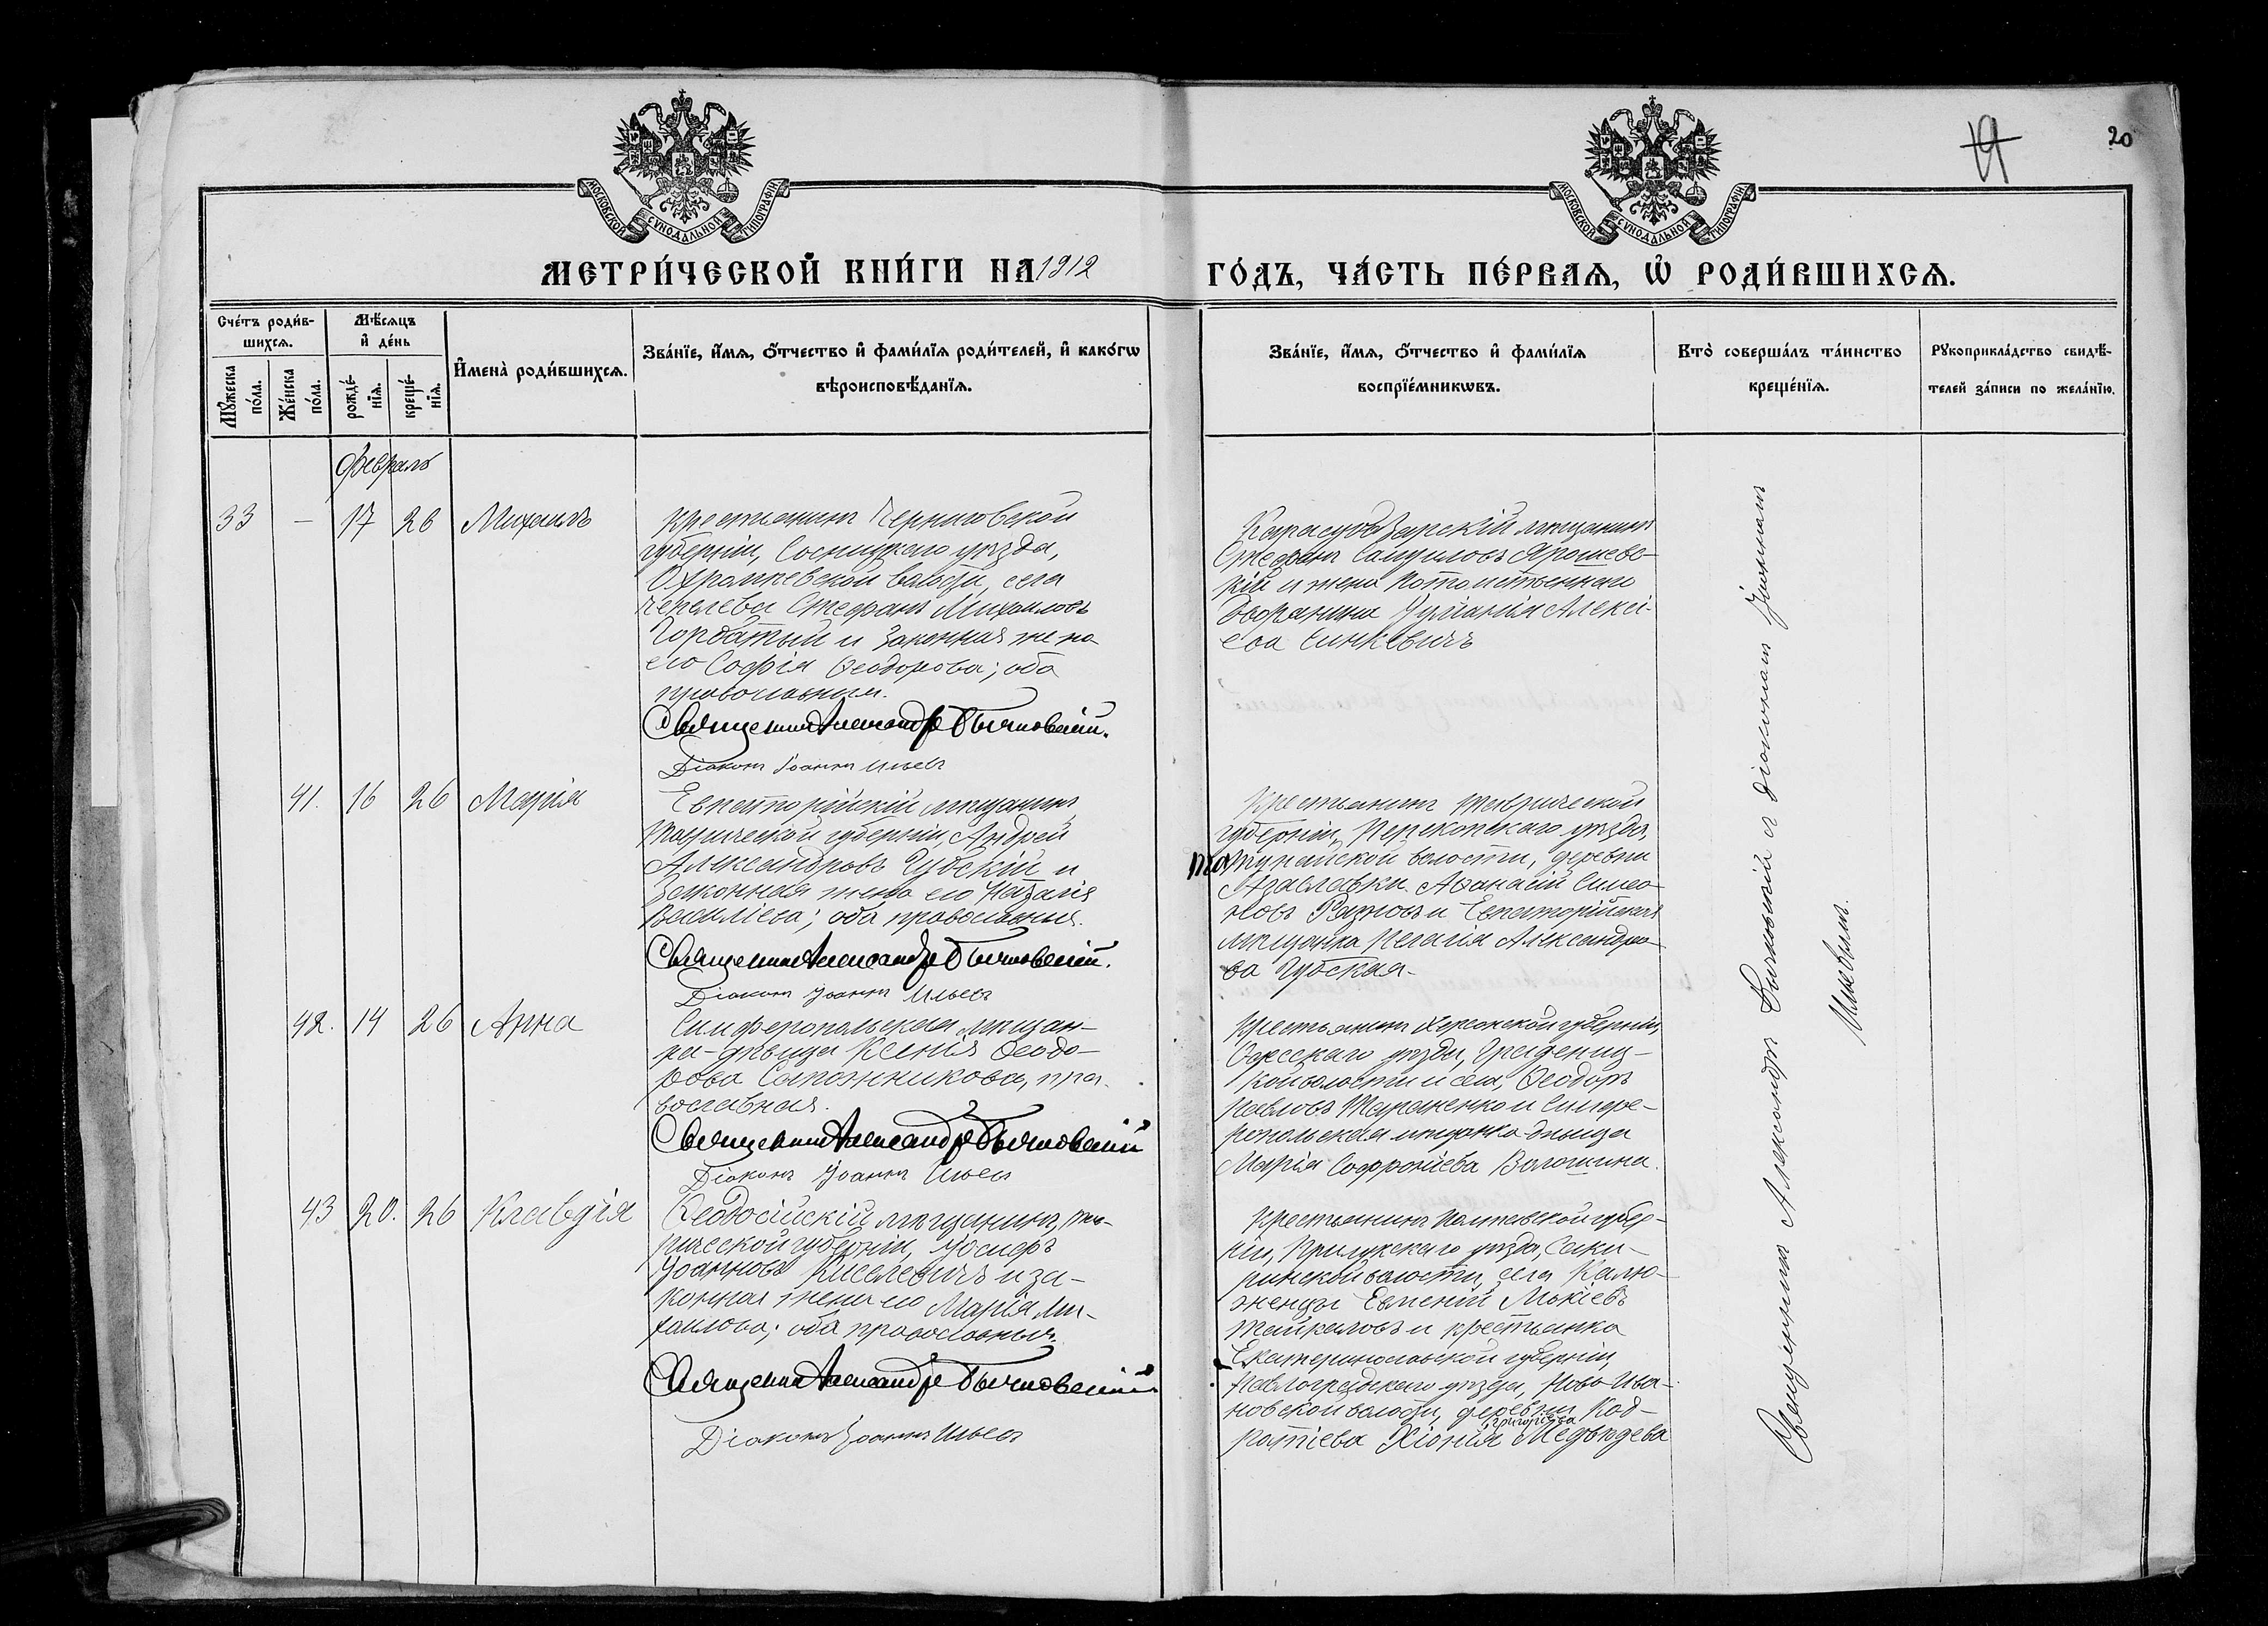 19
20
МОСКОВСКОЙ СѴНОДАЛЬНОЙ ТИПОГРАФІИ
МОСКОВСКОЙ СѴНОДАЛЬНОЙ ТИПОГРАФІИ
МЕТРИ́ЧЕСКОЙ КНИ́ГИ НА 1912
ГО́ДЪ, ЧА́СТЬ ПЕ́РВАѦ, Ѡ҆ РОДИ́ВШИХСѦ.
Сче́тъ роди́в-
шихсѧ.
Мꙋ́жеска
по́ла.
Же́нска
по́ла.
Мѣ́сѧцъ
и҆ де́нь
рожде́-
нїѧ.
креще́-
нїѧ.
И҆мена̀ роди́вшихсѧ.
Зва́нїе, и҆́мѧ, ѻ҆́тчество и҆ фами́лїѧ роди́телей, и҆ како́гѡ
вѣроисповѣ́данїѧ.
Зва́нїе, и҆́мѧ, ѻ҆́тчество и҆ фами́лїѧ
воспрїе́мникѡвъ.
Кто̀ соверша́лъ та́инство
креще́нїѧ.
Рꙋкоприкла́дство свидѣ́-
телей за́писи по жела́нїю.
Февраль
33 — 17 26 Михаилъ
Крестьянинъ Черниговской
губерніи, Сосницкаго уѣзда,
Охрамѣевской волости, села
Стефанъ Михаиловъ
Горбатый и законная жена
его Софія Ѳеодорова; оба
православные.
Священникъ Александръ
Діаконъ Іоаннъ Ильевъ
Карасубазарскій мѣщанинъ
Стефанъ Самуиловъ Ярошевс-
кій и жена потомственнаго
дворянина Іуліанія Алексі-
ева Синкевичъ
41. 16 26 Марія
Евпаторійскій мѣщанинъ
Таврической губерніи, Андрей
Александровъ Губскій и
законная жена его Наталія
Васильева; оба православные.
Священникъ Александръ
Діаконъ Іоаннъ Ильевъ
Крестьянинъ Таврической
губерніи, Перекопскаго уѣзда,
волости, деревни
Аѳанасій Симео-
новъ и Евпаторійская
мѣщанка Пелагія Александро-
ва Губская.
42. 14 26 Анна
Симферопольская мѣщан-
ка-дѣвица Ксенія Ѳеодо-
рова Сапожникова, пра-
вославная.
Священникъ Александръ
Діаконъ Іоаннъ Ильевъ
Крестьянинъ Херсонской губерніи,
Одесскаго уѣзда, Градениц-
кой волости и села, Ѳеодоръ
Павловъ Тараненко и Симфе-
ропольская мѣщанка-дѣвица
Марія Софроніева Волошина.
43 20. 26 Клавдія
Ѳеодосійскій мѣщанинъ, Тав-
рической губерніи, Іосифъ
Іоанновъ Киселевичъ и за-
конная жена его Марія Ми-
хаилова; оба православные.
Священникъ Александръ
Діаконъ Іоаннъ Ильевъ
Крестьянинъ Полтавской губер-
ніи, Прилукскаго уѣзда, Секи-
ринской волости, села Калю-
женцы Евменій
и крестьянка
Екатеринославской губерніи,
Павлоградскаго уѣзда, Ново Ива-
новской волости, деревни Код-
ратіева Хіонія Григоріева Медвѣдева
Священникъ Александръ и діаконъ Іоаннъ
Ильевымъ.